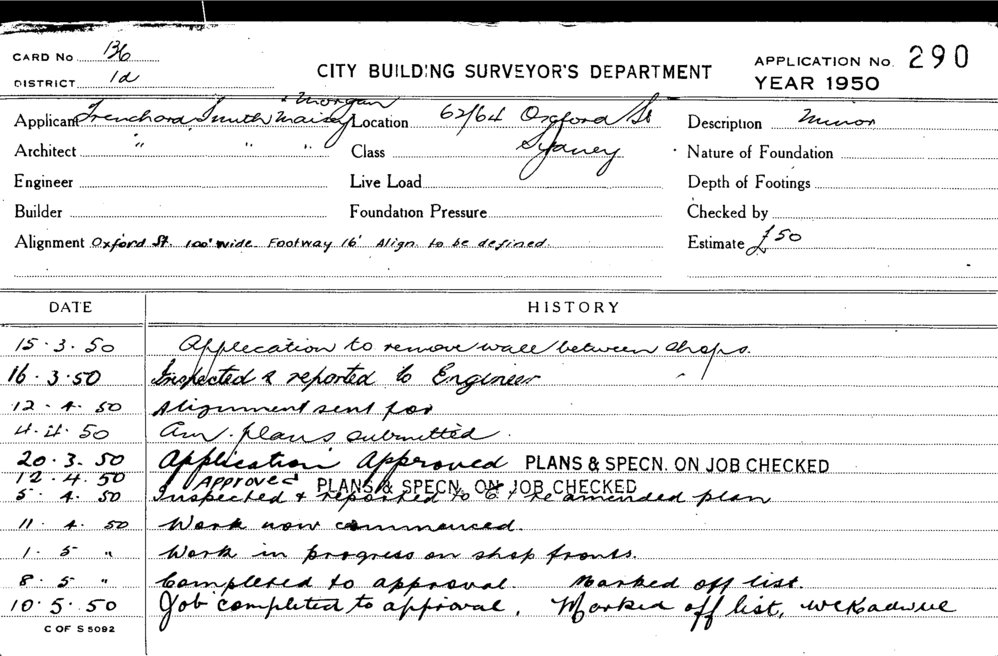 CARD No 136
DISTRICT 1d
CITY BUILDING SURVEYOR'S DEPARTMENT
APPLICATION No. 290
YEAR 1950
& Morgan
Applicant Trenchard Smith Maisey Location 62/64 Oxford St Description Minor
Architect " " " Class Sydney Nature of Foundation
Engineer Live Load Depth of Footings
Builder Foundation Pressure Checked by
Alignment Oxford St. 100' wide. Footway 16' Align. to be defined. Estimate £50
DATE HISTORY
15.3.50 Application to remove wall between shops.
16.3.50 Inspected & reported to Engineer
12.4.50 Alignment sent for
4.4.50 Am. plans submitted.
20.3.50 Application Approved PLANS & SPECN. ON JOB CHECKED
12.4.50 " Approved PLANS & SPECN. ON JOB CHECKED
5.4.50 Inspected & reported to E. re amended plan
11.4.50 Work now commenced.
1.5 " Work in progress on shop fronts.
8.5 " Completed to approval Marked off list.
10.5.50 Job completed to approval, Marked off list,
C OF S 5092